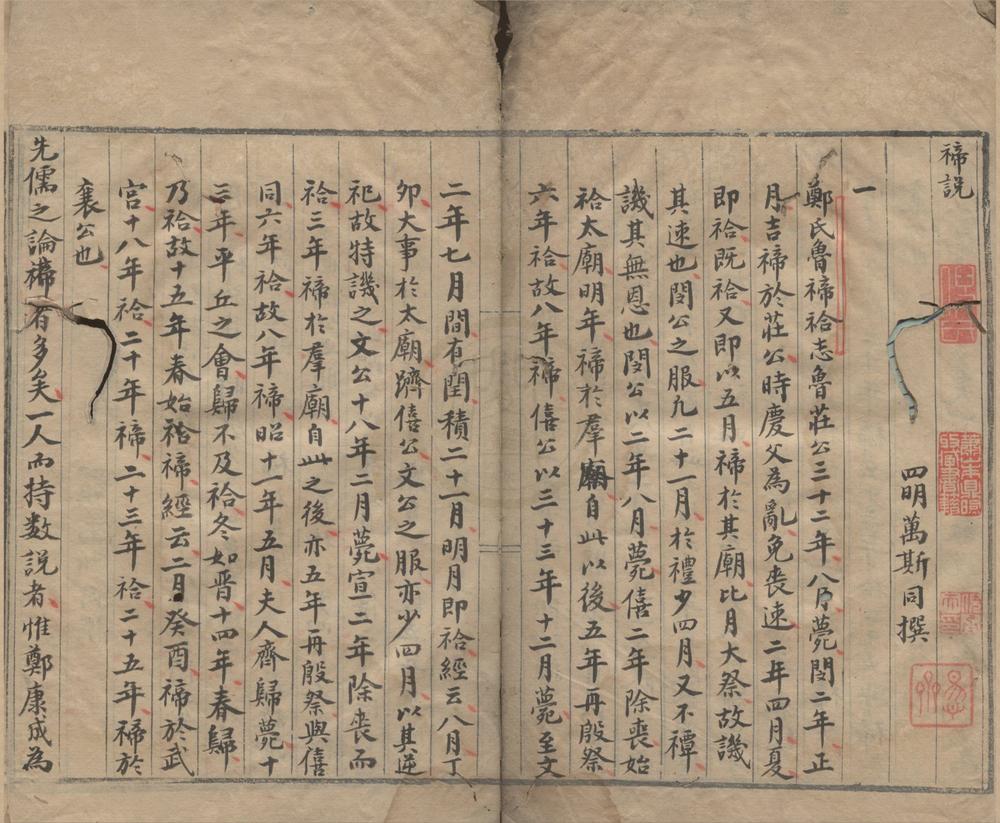 禘説
四明萬斯同撰
一
鄭氏魯禘祫志魯莊公三十二年八月薨閔二年正
月吉禘於莊公時慶父為亂免喪速二年四月夏
即祫既祫又即以五月禘於其廟比月大祭故譏
其速也閔公之服凡二十一月於禮少四月又不禫
譏其無恩也閔公以二年八月薨僖二年除喪始
祫太廟明年禘於羣廟自此以後五年再殷祭
六年祫故八年禘僖公以三十三年十二月薨至文
二年七月間有閏積二十一月明月即祫經云八月丁
卯大事於太廟躋僖公文公之服亦少四月以其逆
祀故特譏之文公十八年二月薨宣二年除喪而
祫三年禘於羣廟自此之後亦五年再殷祭與僖
同六年祫故八年禘昭十一年五月夫人齊歸薨十
三年平丘之會歸不及祫冬如晋十四年春歸
乃祫故十五年春始禘經云二月癸酉禘於武
宮十八年祫二十年禘二十三年祫二十五年禘於
襄公也
先儒之論禘者多矣一人而持数説者惟鄭康成為